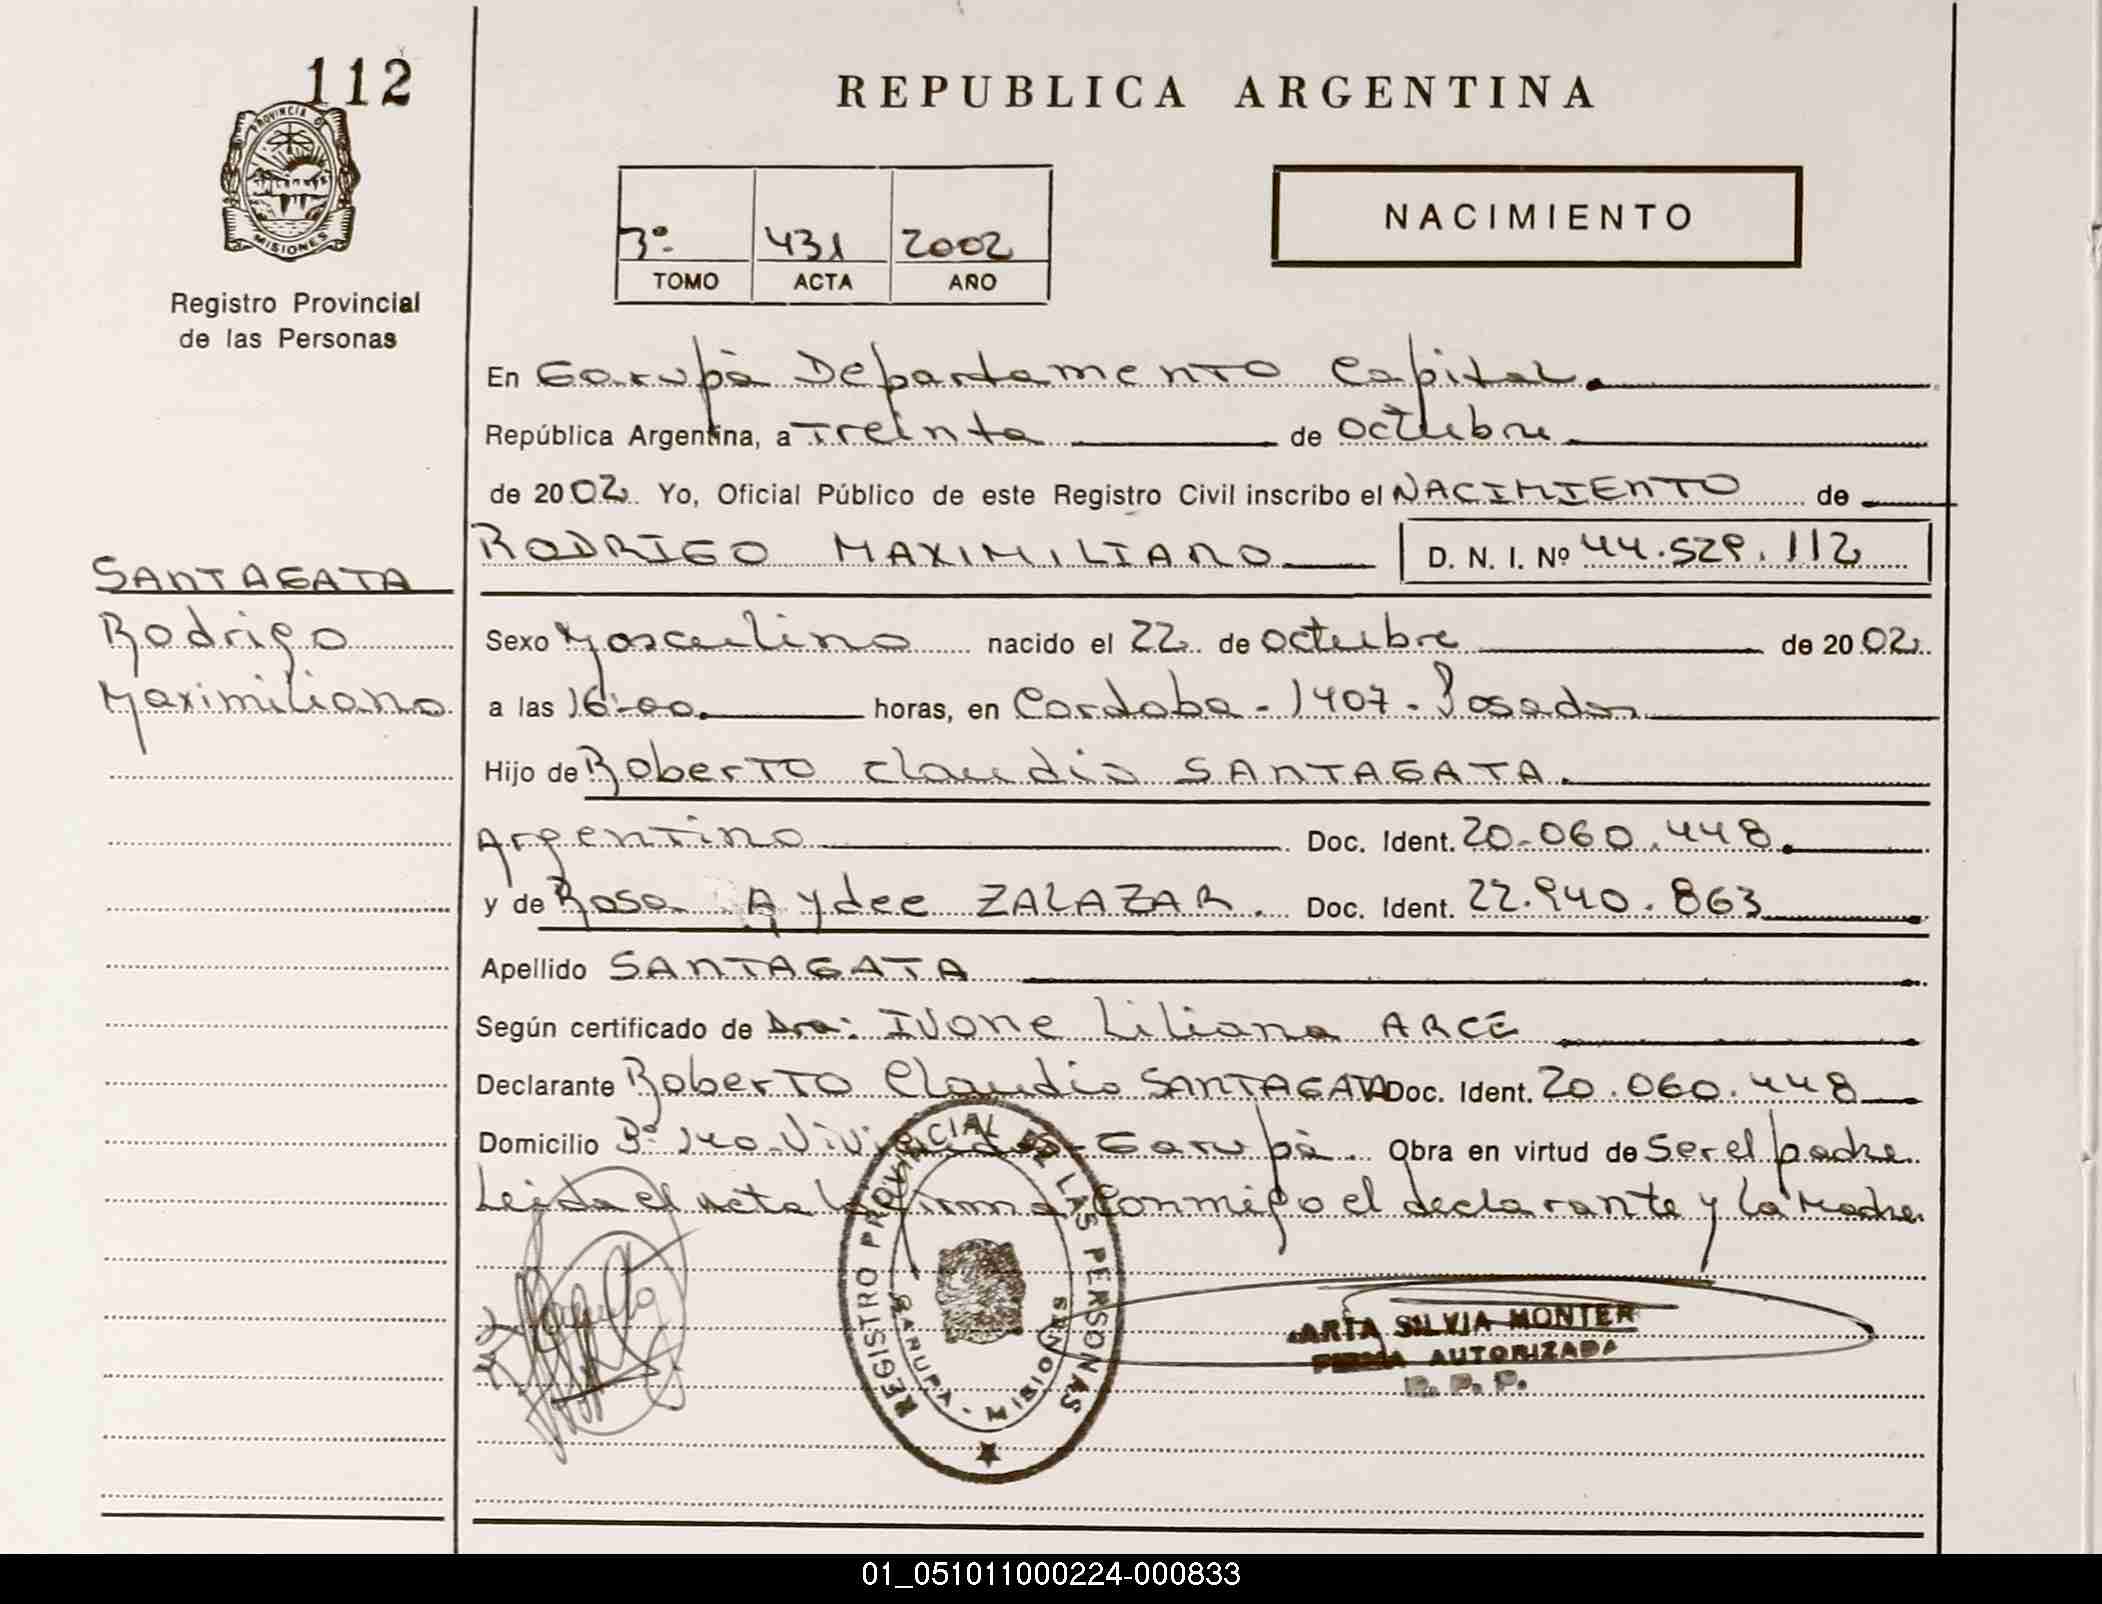 112
PROVINCIA D
MISIONES
Registro Provincial
de las Personas
REPUBLICA ARGENTINA
3º 431 2002
TOMO ACTA AÑO
NACIMIENTO
En Garupà Departamento Capital.
República Argentina, a Treinta de octubre
de 2002. Yo, Oficial Público de este Registro Civil inscribo el NACIMIENTO de
RODRIGO MAXIMILIANO D. N. I. Nº 44.529.112
SANTAGATA
Rodrigo
Maximiliano
Sexo Masculino nacido el 22 de octubre de 2002
a las 16:00 horas, en Cordoba - 1407 - Posadas
Hijo de Roberto Claudio SANTAGATA.
Argentino Doc. Ident. 20.060.448.
y de Rosa Aydee ZALAZAR. Doc. Ident. 22.940.863
Apellido SANTAGATA
Según certificado de Dra: IVONE Liliana ARCE
Declarante Roberto Claudio SANTAGATA Doc. Ident. 20.060.448
Domicilio Bº 140 Viviendas - Garupà. Obra en virtud de Ser el padre
Leida el acta la firma Conmigo el declarante y la Madre
REGISTRO PROVINCIAL DE LAS PERSONAS
GARUPA - MISIONES
ARIA SILVIA MONTER
FIRMA AUTORIZADA
R. P. P.
01_051011000224-000833